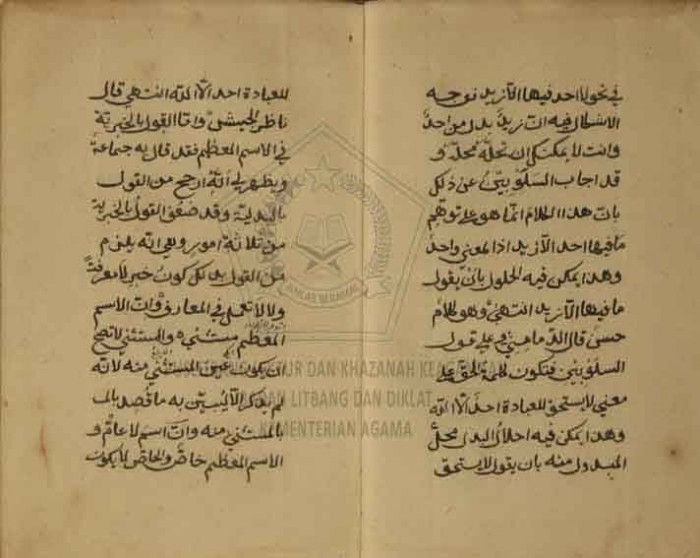 في نحو لا احد فيها الا زيد نوجه
الاشكال فيه ان زيدا بدل من احد
وانت لا يمكنك ان تحله محله و
قد اجاب السلوبيني عن ذلك
بان هذا الكلام انما هو على توهم
ما فيها احد الا زيد اذ المعنى واحد
وهذا يمكن فيه الحلول بان يقول
ما فيها الا زيد انتهى وهو كلام
حسن قال الدماميني وعلى قول
السلوبيني فتكون كلمة الحق على
معنى لا يستحق للعبادة احد الا الله
وهذا يمكن فيه احلال البدل محل
المبدل منه بان يقول لا يستحق
للعبادة احد الا الله انتهى قال
ناظر الجيش واما القول بالخبرية
في الاسم المعظم فقد قال به جماعة
ويظهر لي انه ارجح من القول
بالبدلية وقد ضعف القول بالخبرية
من ثلاثة امور وهي انه يلزم
من القول بذلك كون خبر لا معرفة
ولا لا تعمل في المعارف وان الاسم
المعظم مستثنى والمستثنى لا تصح
ان يكون عين المستثنى منه لانه
لم يذكر الا ليبين به ما قصد بالمـ
بالمستثنى منه وان اسم لا عام و
الاسم المعظم خاص والخاص لا يكون
BADAN LITBANG DAN DIKLAT
KEMENTERIAN AGAMA